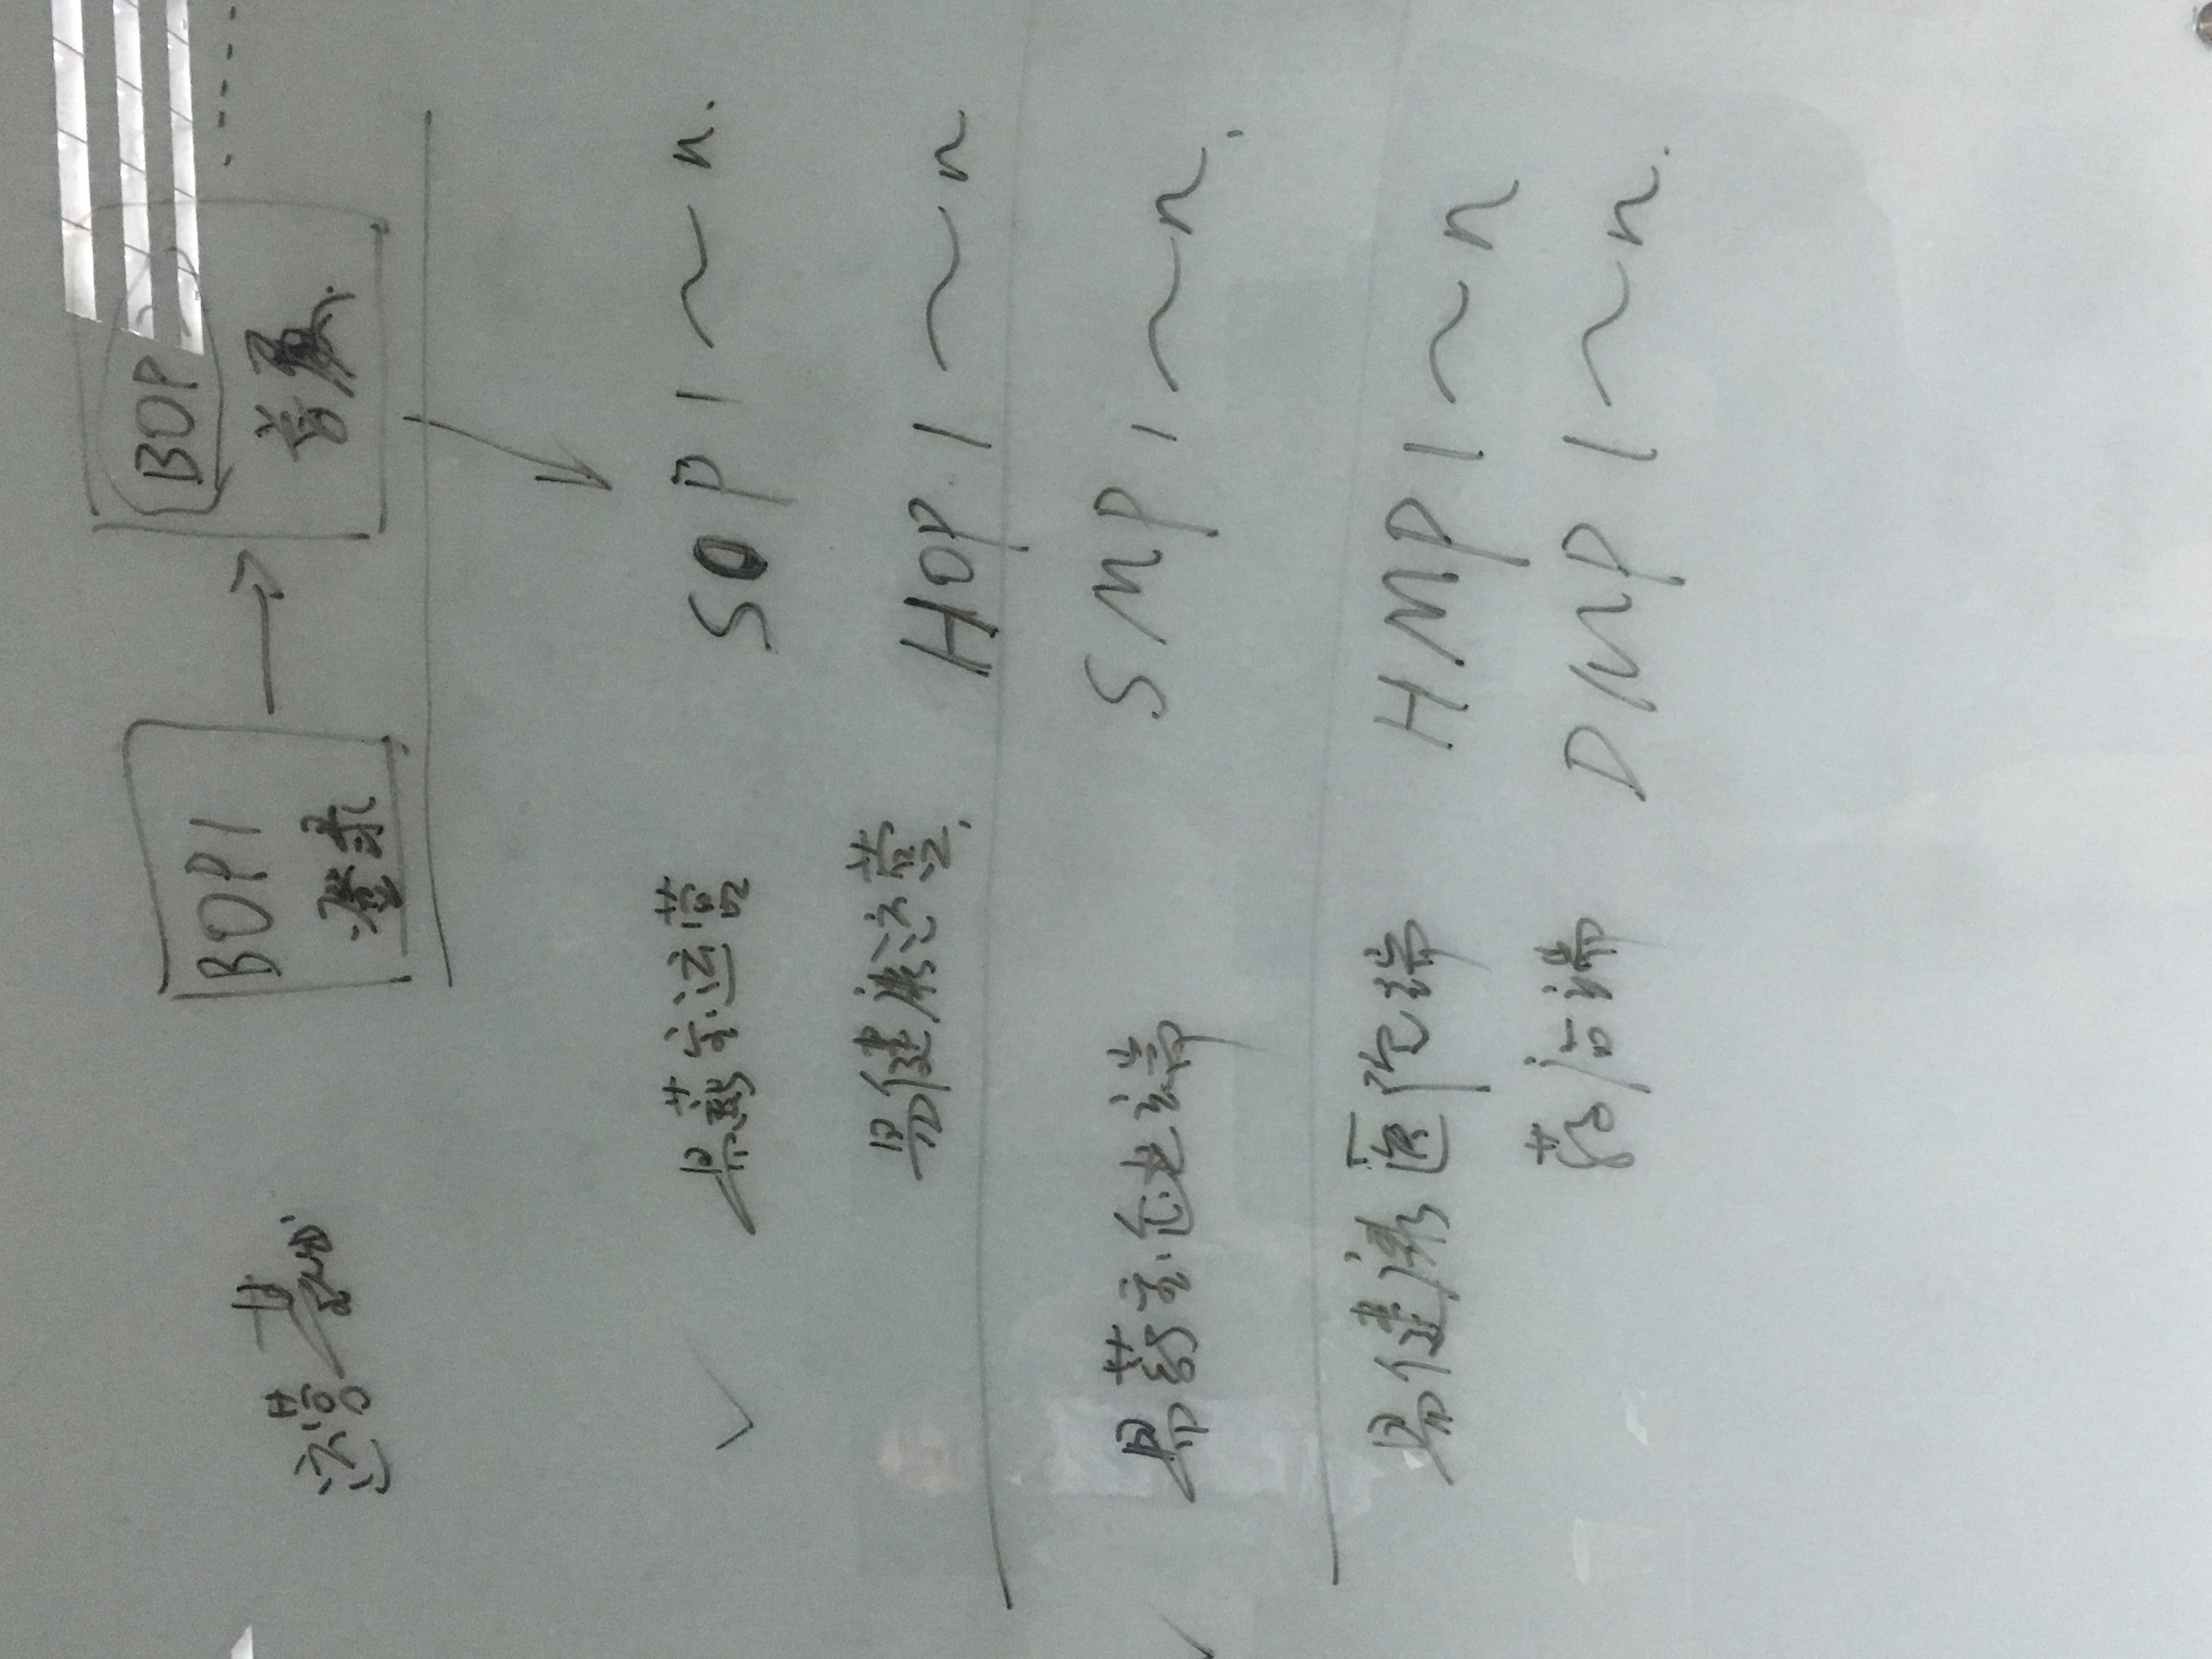 运营基础
BOP1
登录
BOP
首页
易薪宝运营 SOP 1～n.
易健康运营 HOP 1～n
易薪宝企业端 SMP 1～n
易健康 医院端 HMP 1～n
药店端 DMP 1～n.